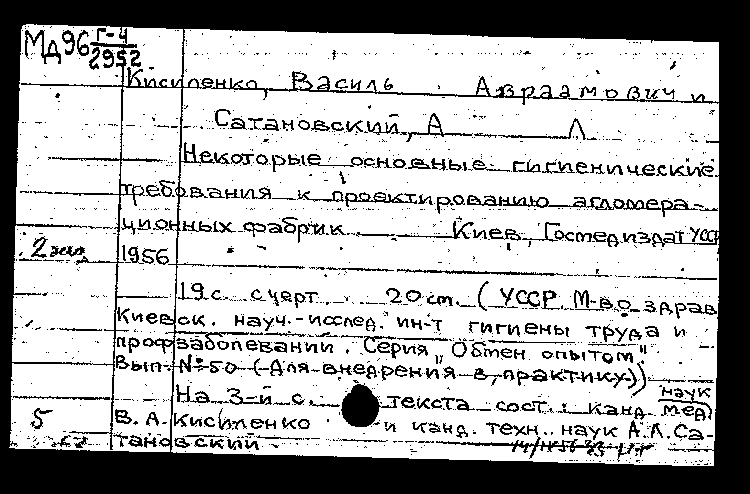 Мд96 Г-4
2952
Кисиленко, Василь Авраамович и
Сатановский, А Л
Некоторые основные гигиенические
требования к проектированию агломера-
ционных фабрик. Киев, Госмедиздат УССР
2 экз
1956
19 с. с черт. 20 см. (УССР. М-во здрав
Киевск. науч.-исслед. ин-т гигиены труда и
профзаболеваний. Серия „Обмен опытом"
Вып. №50 (Для внедрения в практику))
На 3-й с. текста сост.: канд. мед. наук
5
В. А. Кисиленко и канд. техн. наук А.Л. Са-
тановский.